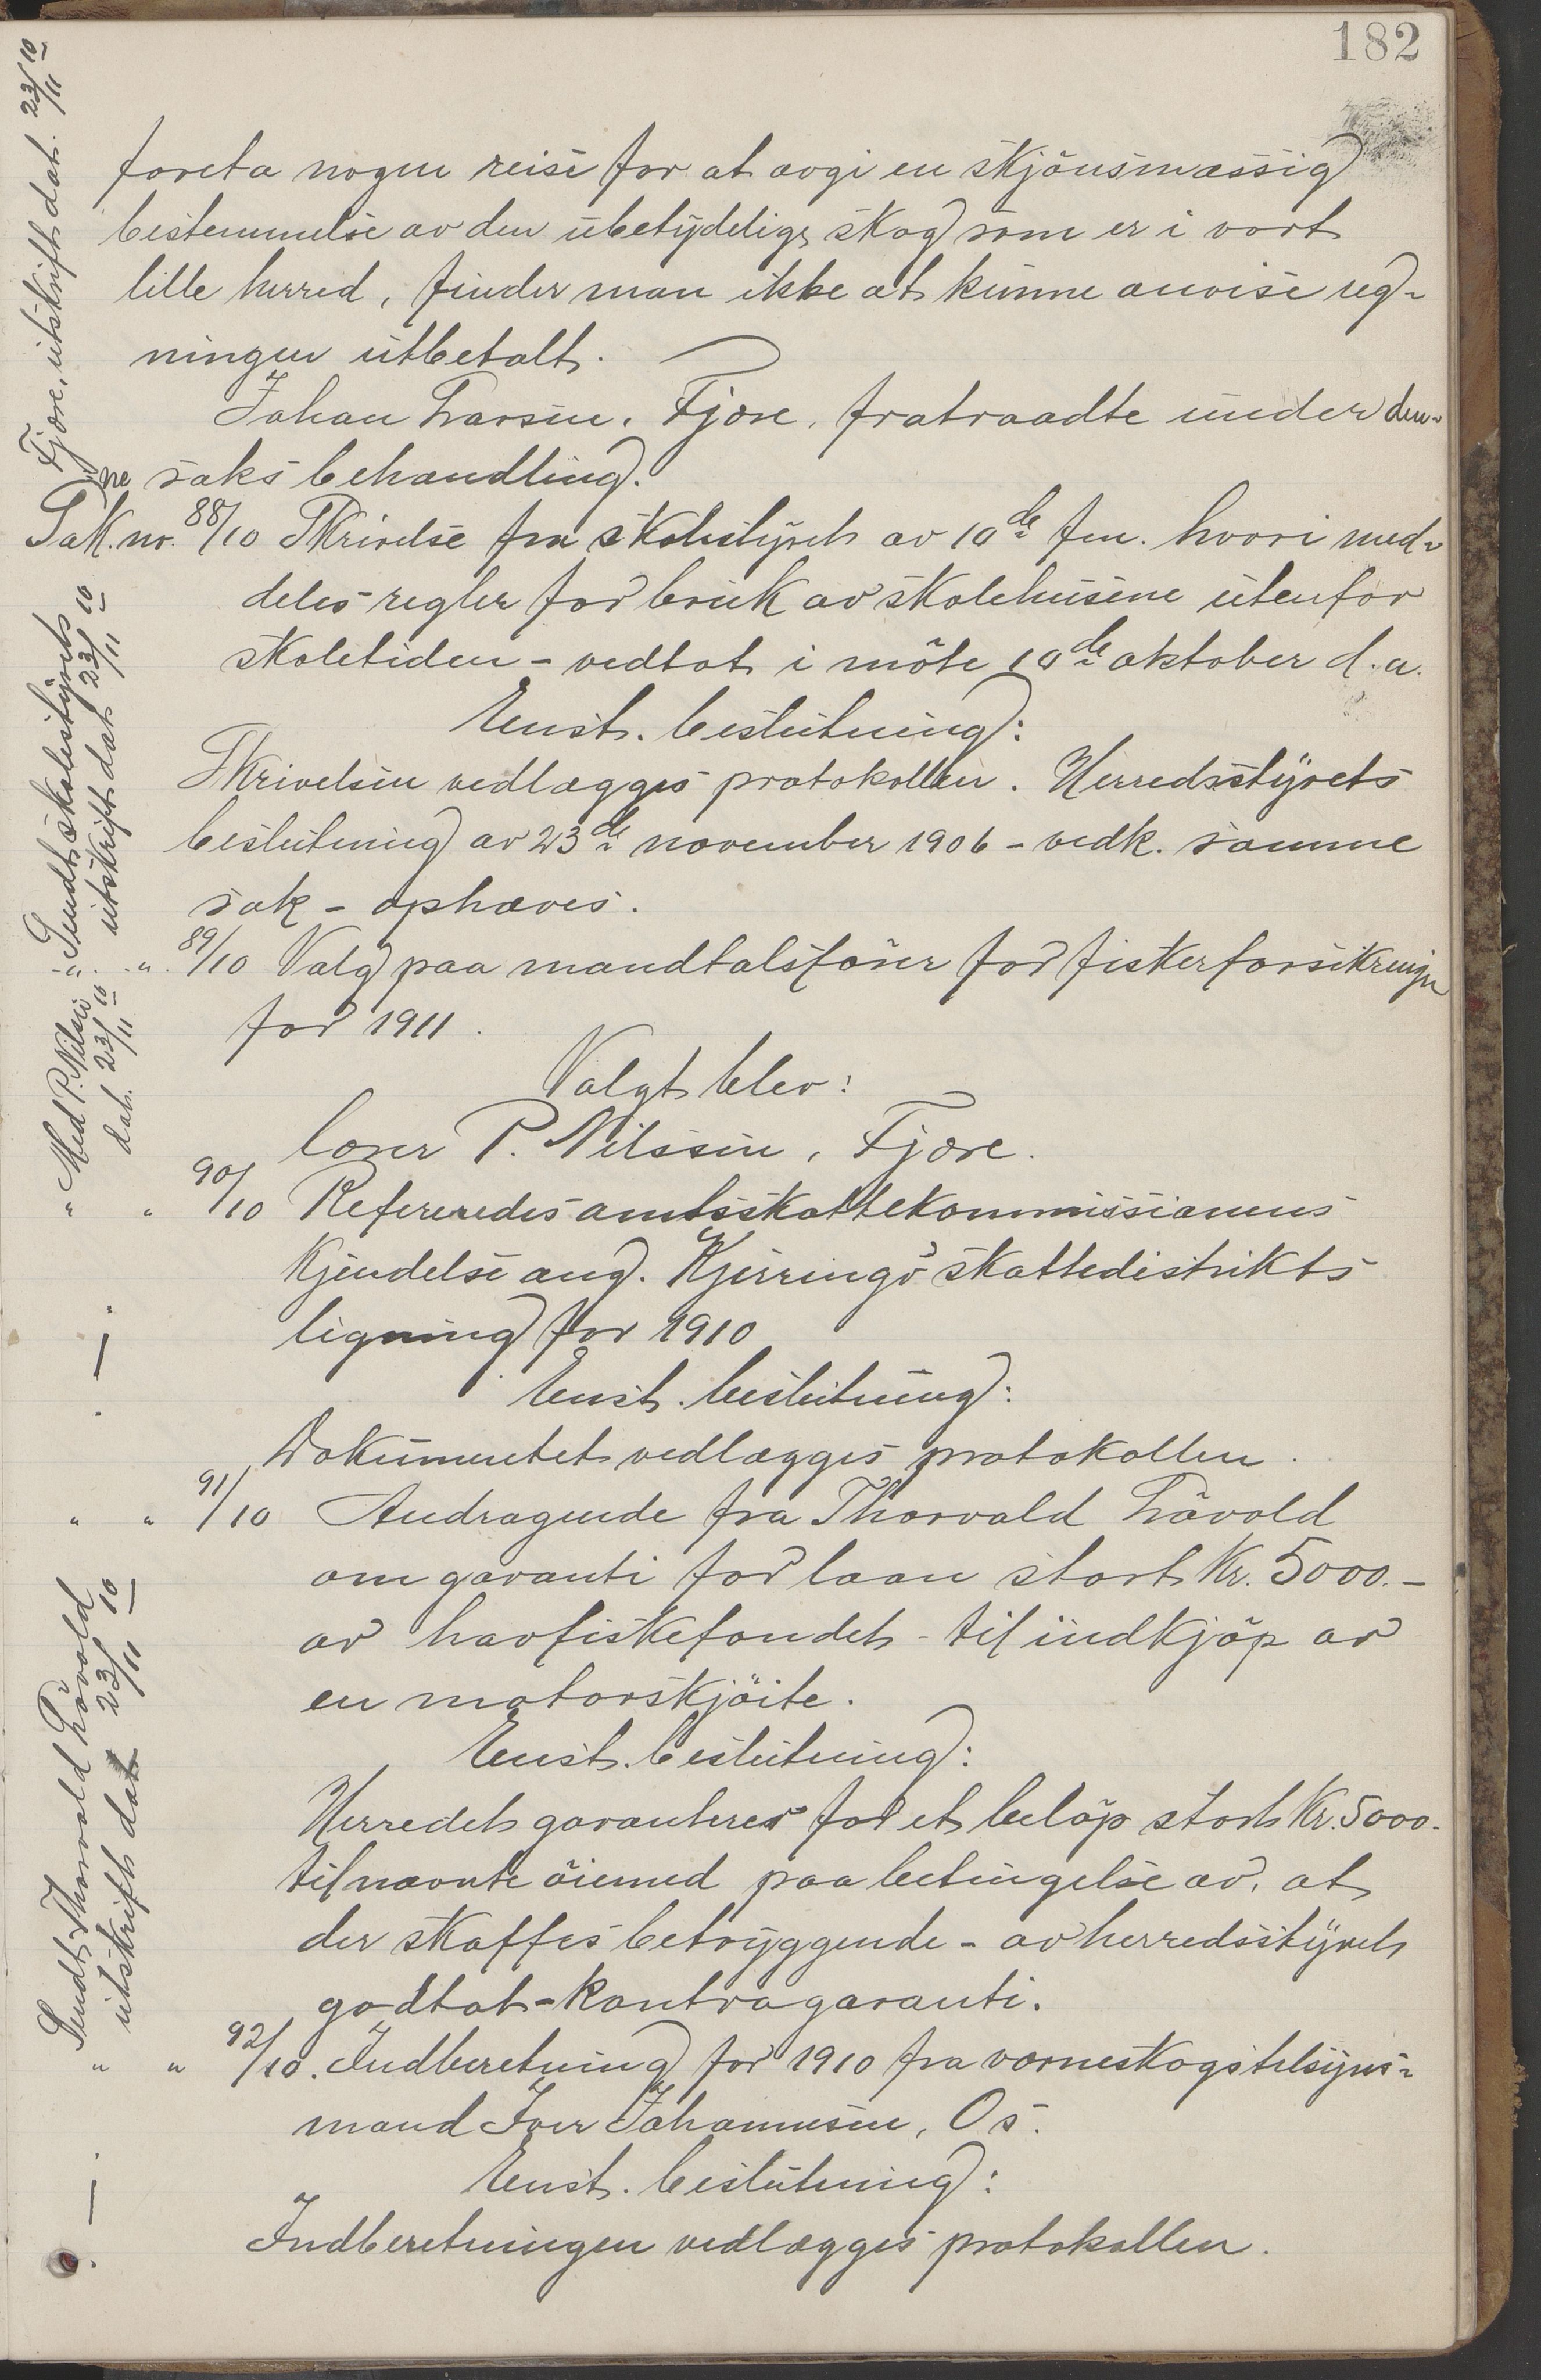 182
foreta nogen reise for at avgi en skjönsmæssig
bestemmelse av den ubetydelige skog som er i vort
lille herred, finder man ikke at kunne anvise reg-
ningen utbetalt.
Johan Larsen, Fjære, fratraadte under den-
ne saks behandling.
Sak nr. 88/10 Skrivelse fra skolestyret av 10de fm. hvori med-
deles regler for bruk av skolehusene utenfor
skoletiden - vedtat i möte 10de oktober d.a.
Enst. beslutning:
Skrivelsen vedlægges protokollen. Herredsstyrets
beslutning av 23de november 1906 - vedk. samme
sak - ophæves.
" " 89/10 Valg paa mandtalsförer for fiskerforsikringen
for 1911.
Valgt blev:
Loser P. Nilssen, Fjære.
" " 90/10 Refereredes amtsskattekommissionens
kjendelse ang. Kjerringö skattedistrikts
ligning for 1910
Enst. beslutning:
Dokumentet vedlægges protokollen.
" " 91/10 Andragende fra Thorvald Lövold
om garanti for laan stort Kr. 5000.-
av havfiskefondet - til indkjöp av
en motorskjöite.
Enst. beslutning:
Herredet garanterer for et belöp stort Kr. 5000.
til nævnte öiemed paa betingelse av, at
der skaffes betryggende - av herredsstyret
godtat - kontragaranti.
" " 92/10. Indberetning for 1910 fra værneskogstilsyns-
mand Iver Johannesen, Os.
Enst. beslutning:
Indberetningen vedlægges protokollen.
Fjære, utskrift dat. 23/11 10
Sendt skolestyrets
utskrift dat 23/11 10
Med P. Nilsen
dat. 23/11 10
Sendt Thorvald Lövold
utskrift dat 23/11 10